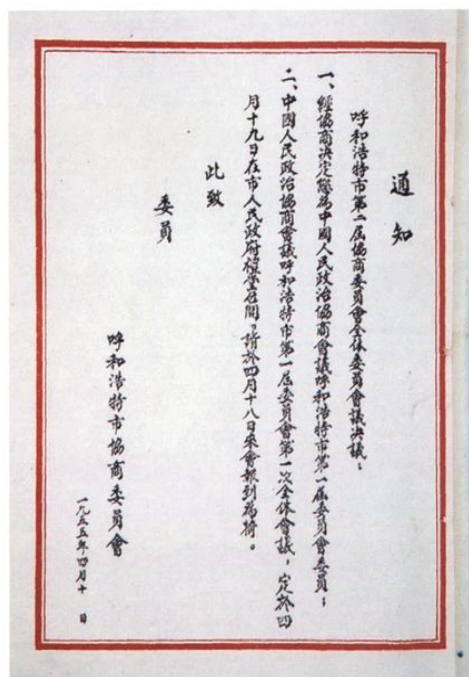 通知
呼和浩特市第二屆協商委員會全体委員會議决議：
一、經協商决定您為中國人民政治協商會議呼和浩特市第一屆委員會委員；
二、中國人民政治協商會議呼和浩特市第一屆委員會第一次全体會議，定於四
月十九日在市人民政府禮堂召開，請於四月十八日來會報到為荷。
此致
委員
呼和浩特市協商委員會
一九五五年四月十 日